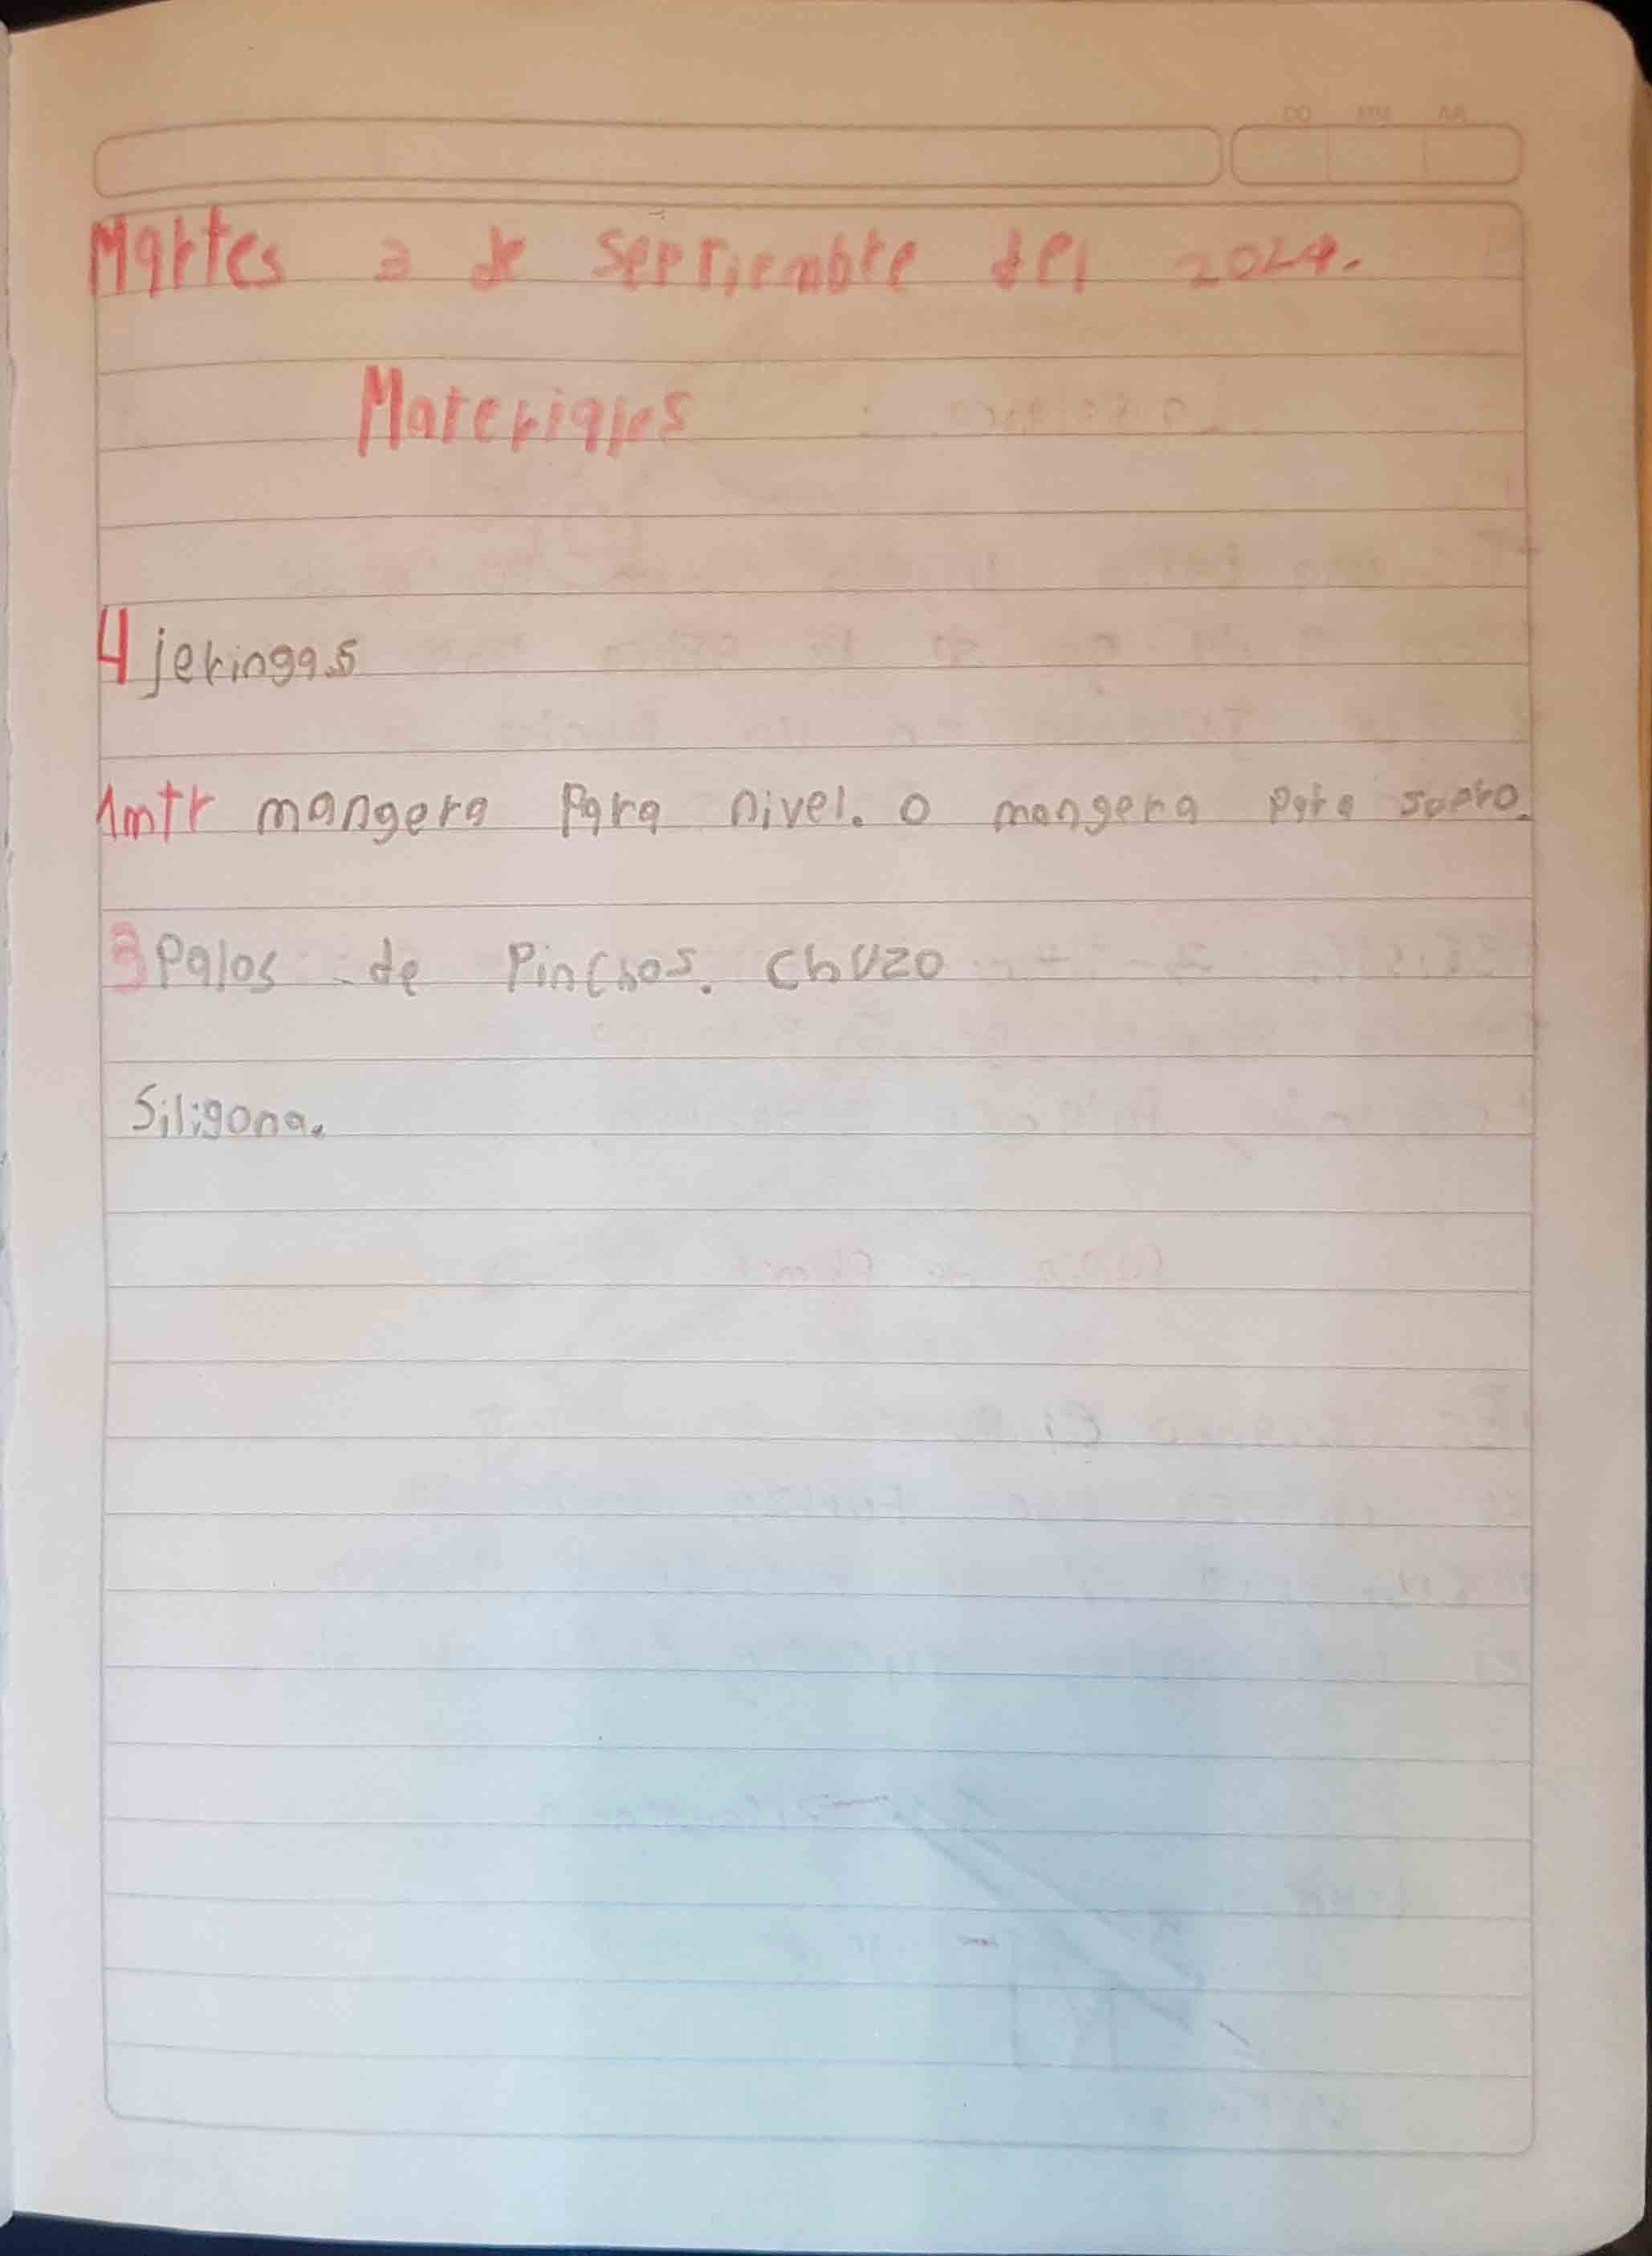 Martes 3 de septiembre del 2024.
Materiales
4 jeringas
1mtr mangera para nivel. o mangera para suero.
3 Palos de Pinchos. Chuzo
Siligona.